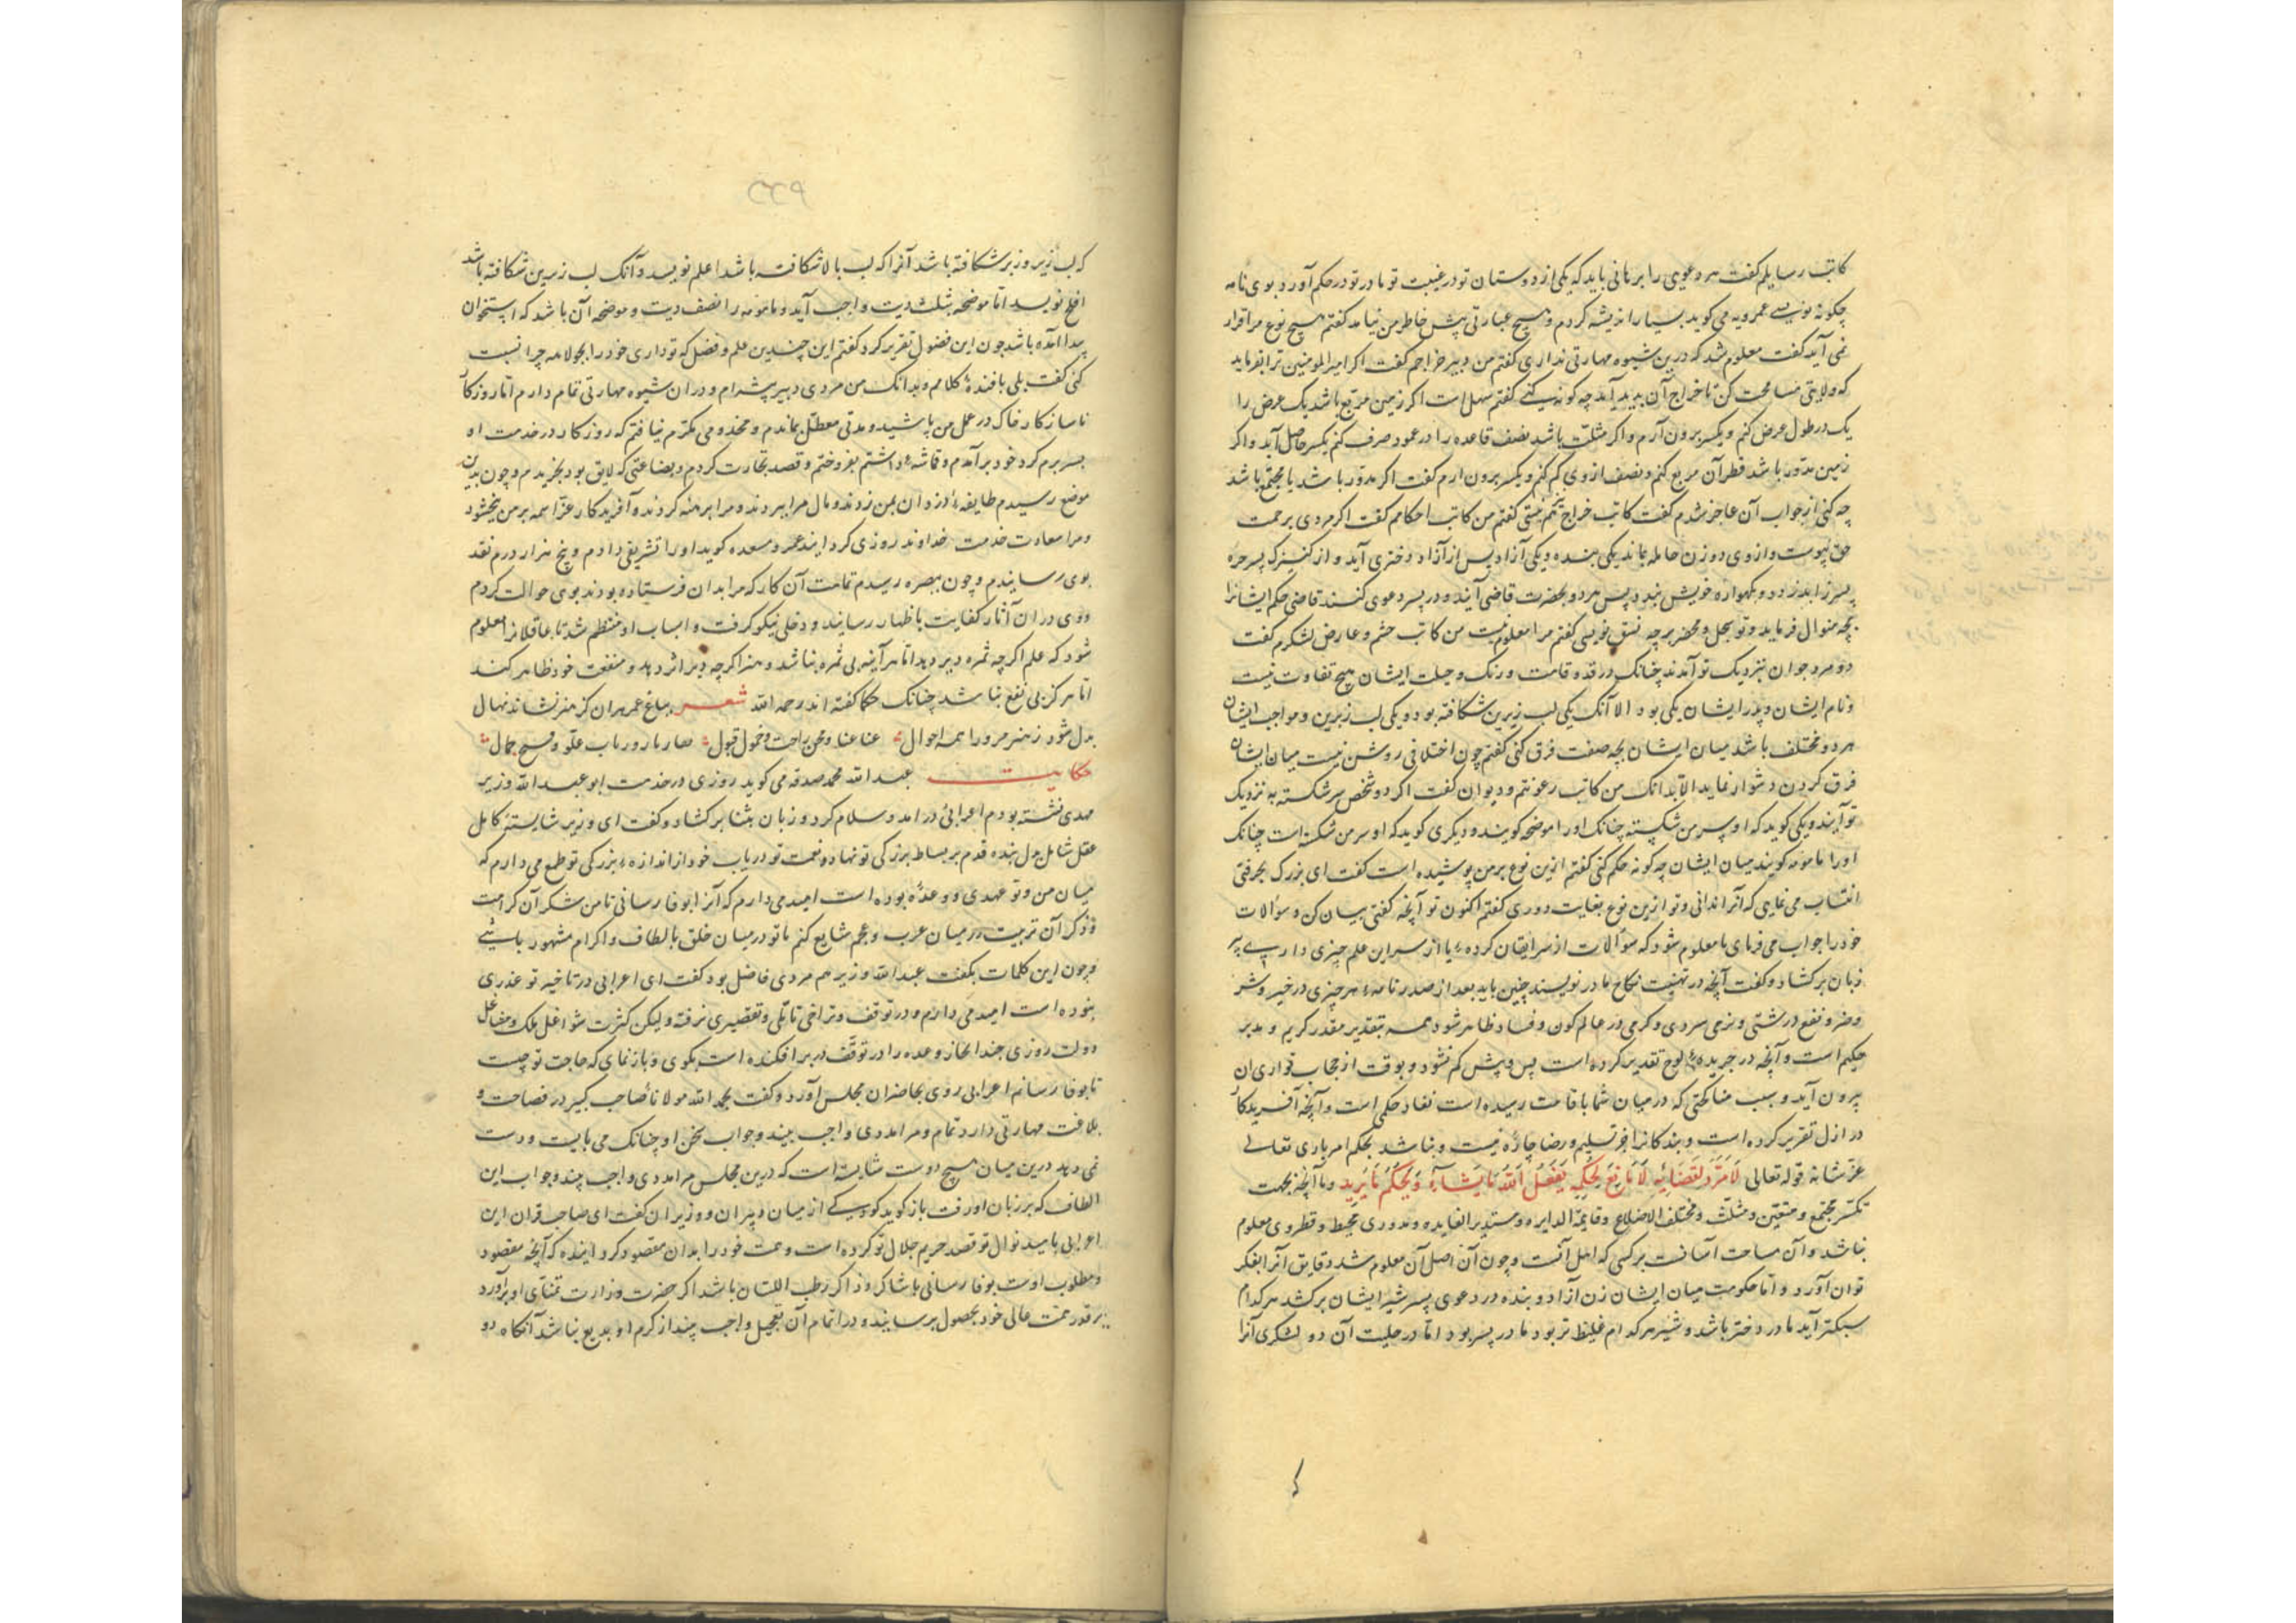 کاتب رسایلم گفت هر دعوی را برهانی باید که یکی از دوستان تو در غیبت تو مادر تو در حکم آورد بوی نامه
چگونه نویسی عمرو می گوید بسیار اندیشه کردم و هیچ عبارتی پیش خاطر من نیامد گفتم هیچ نوع مرا قرار
نمی آید گفت معلوم شد که درین شیوه مهارتی نداری گفتم من دبیر خراجم گفت اگر امیرالمومنین ترا بفرماید
که ولایتی مساحت کن تا خراج آن پدید آید چه گونه کنی گفتم سهل است اگر زمین مربع باشد یک عرض را
یک در طول عرض کنم و یکسر برون آرم و اگر مثلث باشد نصف قاعده را در عمود صرف کنم یکسر حاصل آید و اگر
زمین مدور باشد قطر آن مربع کنم و نصف از وی کم کنم و یکسر برون ارم گفت اگر مدور باشد یا مجتمع باشد
چه کنی از جواب آن عاجز شدم گفت کاتب خراج هم نیستی گفتم من کاتب احکامم گفت اگر مردی برحمت
حق پیوست و از وی دو زن حامله بماند یکی بنده و یکی آزاد پس از آزاد دختری آید و از کنیزک پسر حره
پسر را بدزدد و بگهواره خویش نهد پس هر دو بحضرت قاضی آیند و در پسر دعوی کنند قاضی حکم ایشانرا
بچه منوال فرماید و تو سجل و محضر بر چه نسق نویسی گفتم مرا معلوم نیست من کاتب حشم و عارض لشکرم گفت
دو مرد جوان بنزدیک تو آمدند چنانک در قد و قامت و رنک و حیلت ایشان هیچ تفاوت نیست
و نام ایشان و پدر ایشان یکی بود الا آنک یکی لب زیرین شکافته بود و یکی لب زبرین و مواجب ایشان
هر دو مختلف باشد میان ایشان بچه صفت فرق کنی گفتم چون اختلافی روشن نیست میان ایشان
فرق کردن دشوار نماید الا بدانک من کاتب رعونتم و دیوان گفت اگر دو شخص سر شکسته به نزدیک
تو آیند و یکی گوید که او سر من شکسته چنانک اورا موضحه گویند و دیگری گوید که او سر من شکسته است چنانک
اورا مامومه گویند میان ایشان چه گونه حکم کنی گفتم ازین نوع بر من پوشیده است گفت ای بزرک بحرفتی
انتساب می نمایی که آنرا ندانی و تو ازین نوع بغایت دوری گفتم اکنون تو آنچه گفتی بیان کن و سؤالات
خود را جواب می فرمای تا معلوم شود که سؤالات از سر ایقان کرده یا از سر این علم چیزی داری پیر
زبان بر کشاد و گفت آنچه در تهنیت نکاح مادر نویسند چنین باید بعد از صدر نامه هر چیزی در خیر و شر
و ضر و نفع درشتی و نرمی سردی و گرمی در عالم کون و فساد ظاهر شود همه بتقدیر مقدر کریم و مدبر
حکیم است و آنچه در جریده لوح تقدیر کرده است پس و پیش کم نشود و بوقت از حجاب تواری ان
برون آید و سبب مناکحتی که در میان شما باقامت رسیده است نفاد حکمی است و آنچه آفریدکار
در ازل تقریر کرده است و بندکانرا جز تسلیم و رضا چاره نیست و نباشد بحکم امر باری تعالی
عز شانه قوله تعالی لَا مَرَدَّ لِقَضَائِهِ لَا مَانِعَ لِحُکْمِهِ یَفْعَلُ اللّهُ مَا یَشَآءُ وَ یَحْکُمُ مَا یُرِید و ما آنچه بجهت
تکسر مجتمع و متعین و مثلث و مختلف الاضلاع و قایمة الدایره و مستدیر الفایده و مدوری محیط و قطر وی معلوم
نباشد و آن مساحت آسانست بر کسی که اهل آنست و چون آن اصل آن معلوم شد دقایق آنرا بفکر
توان آورد و اما حکومت میان ایشان زن آزاد و بنده در دعوی پسر شیر ایشان بر کشد هر کدام
سبکتر آید مادر دختر باشد و شیر هر کدام غلیظ تر بود مادر پسر بود اما در حلیت آن دو لشکری آنرا
که لب زیر و زبر شکافته باشد آنرا که لب بالا شکافته باشد اعلم نویسد و آنک لب زیرین شکافته باشد
افلح نویسد اما موضحه ثلث دیت واجب آید و مامومه را نصف دیت و موضحه آن باشد که استخوان
پیدا آمده باشد چون این فضول تقریر کرد گفتم این چندین علم و فضل که تو داری خود را بجولاهه چرا نسبت
کنی گفت بلی بافنده کلامم و بدانک من مردی دبیر پیشه ام و در ان شیوه مهارتی تمام دارم اما روزکار
ناسازکار خاک در عمل من پاشید و مدتی معطل بماندم و مخدومی مکرم نیافتم که روزکار در خدمت او
بسر برم کرد خود بر آمدم و قماشه داشتم بفروختم و قصد تجارت کردم و بضاعتی که لایق بود بخریدم و چون بدین
موضع رسیدم طایفه دزدان بمن زدند و مال مرا ببردند و مرا برهنه کردند و آفریدکار عز اسمه بر من ببخشود
و مرا سعادت خدمت خداوند روزی کرد ایند عمرو مسعده گوید اورا تشریفی دادم و پنج هزار درم نقد
بوی رسانیدم و چون ببصره رسیدم تمامت آن کار که مرا بدان فرستاده بودند بوی حوالت کردم
و وی در ان آثار کفایت باظهار رسانید و دخلی نیکو گرفت و اسباب او منتظم شد تا عاقلانرا معلوم
شود که علم اگر چه ثمره دیر دهد اما هر آینه بی ثمره نباشد و هنر اگر چه دیر اثر دهد و منفعت خود ظاهر کند
اما هرکز بی نفع نباشد چنانک حکما گفته اند رحمه الله شعر بباغ عمر هران کز هنر نشاند نهال
بدل شود ز هنر مرورا همه احوال عنا غنا و محن راحت و خمول قبول
حکایت عبد الله محمد صدقه می گوید روزی در خدمت ابو عبد الله وزیر
مهدی نشسته بودم اعرابئی در امد و سلام کرد و زبان بثنا بر کشاد و گفت ای وزیر شایسته کامل
عقل شامل عدل بنده قدم بر بساط بزرکی تو نهاد و نعمت تو دریاب خود از اندازه بزرکی تو طمع می دارم که
میان من و تو عهدی و وعده بوده است امید می دارم که آنرا بوفا رسانی تا من شکر آن کرامت
و ذکر آن تربیت در میان عرب و عجم شایع کنم تا تو در میان خلق بالطاف و اکرام مشهور باشی
و چون این کلمات بگفت عبد الله وزیر هم مردی فاضل بود گفت ای اعرابی در تاخیر تو عذری
بنوده است امید می دارم و در توقف و تراخی تاملی و تقصیری نرفته و لیکن کثرت شواغل ملک و مشاغل
دولت روزی چند انجاز وعده را در توقف در بر افکنده است بگوی و باز نمای که حاجت تو چیست
تا بوفا رسانم اعرابی روی بحاضران مجلس آورد و گفت بحمد الله مولانا صاحب کبیر در فصاحت و
بلاغت مهارتی دارد تمام و مرا مددی واجب بیند و جواب سخن او چنانک می بایست و دست
نمی دهد درین میان هیچ دوست شایسته است که درین مجلس مرا مددی واجب بیند و جواب این
الطاف که بر زبان او رفت باز گوید کودکی از میان دبیران و وزیران گفت ای صاحب قران این
اعرابی بامید نوال تو قصد حریم جلال تو کرده است و همت خود را بدان مقصود کرد اینده که آنچه مقصود
و مطلوب اوست بوفا رسانی تا شاکر و ذاکر رطب اللسان باشد اگر حضرت وزارت تمنای او برآورد
بر قدر همت عالی خود بحصول برسانید و در اتمام آن تعجیل واجب بیند از کرم او بدیع نباشد آنکاه دو